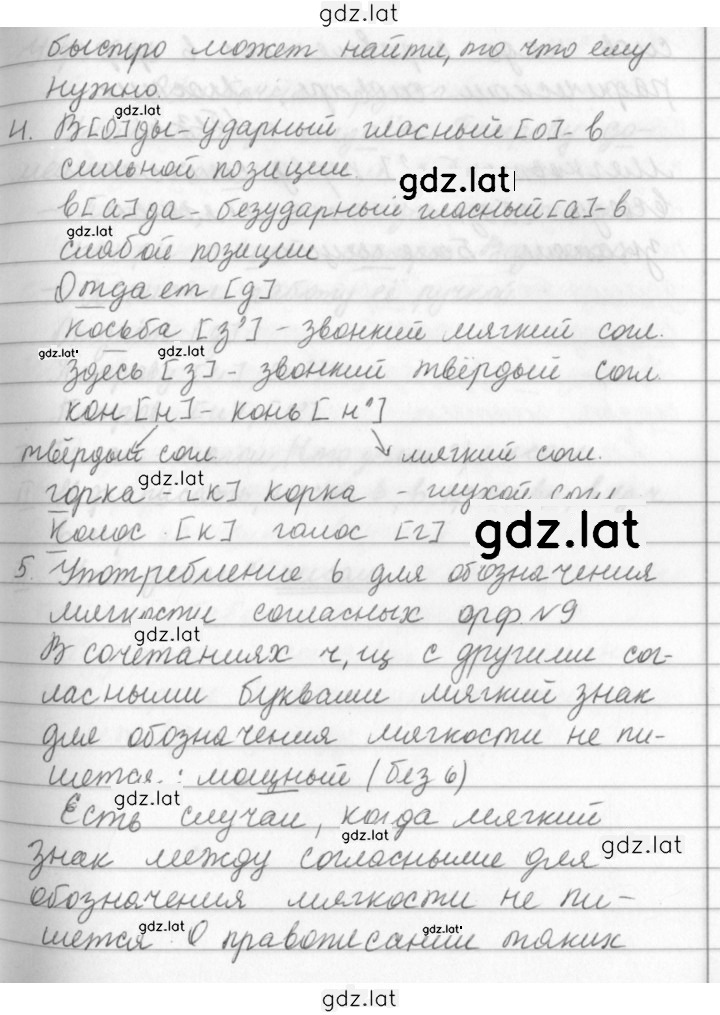 gdz.lat
быстро может найти, то что ему
нужно.
gdz.lat
4. В[о]ды - ударный гласный [о] - в
сильной позиции.
gdz.lat
в[а]да - безударный гласный [а] - в
gdz.lat
слабой позиции
Отдает [д]
Косьба [з'] - звонкий мягкий согл.
gdz.lat
gdz.lat
Здесь [з] - звонкий твёрдый согл.
кон [н] - конь [н']
твёрдый согл. мягкий согл.
gdz.lat
горка - [к] корка - глухой согл.
Колос [к] голос [г]
gdz.lat
5. Употребление ь для обозначения
мягкости согласных орф. №9
gdz.lat
В сочетаниях ч, щ с другими сог-
ласными буквами мягкий знак
для обозначения мягкости не пи-
шется.: мощный (без ь)
gdz.lat
Есть случаи, когда мягкий
gdz.lat
gdz.lat
знак между согласными для
обозначения мягкости не пи-
gdz.lat
gdz.lat
шется О правописании таких
gdz.lat